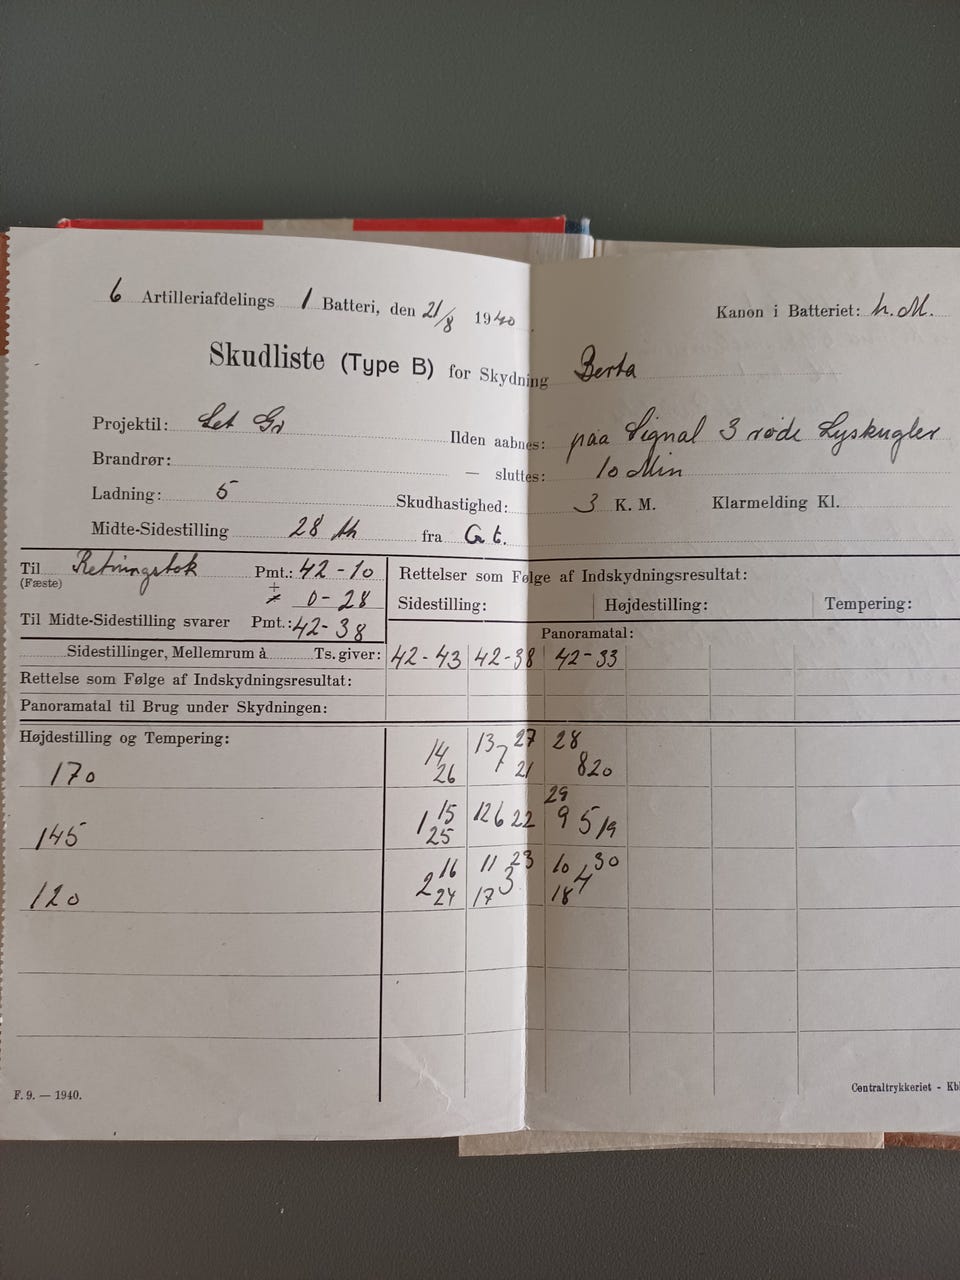 6 Artilleriafdelings 1 Batteri, den 21/8 1940.
Kanon i Batteriet: h. M.
Skudliste (Type B) for Skydning Berta
Projektil: Let Gr
Ilden aabnes: paa Signal 3 røde Lyskugler
Brandrør:
— sluttes: 10 Min
Ladning: 5
Skudhastighed: 3 K. M. Klarmelding Kl.
Midte-Sidestilling 28 th fra G t.
Til Retningstok Pmt.: 42-10
(Fæste)
+
÷ 0-28
Til Midte-Sidestilling svarer Pmt.: 42-38
Rettelser som Følge af Indskydningsresultat:
Sidestilling: Højdestilling: Tempering:
Panoramatal:
Sidestillinger, Mellemrum à Ts. giver: 42-43 42-38 42-33
Rettelse som Følge af Indskydningsresultat:
Panoramatal til Brug under Skydningen:
Højdestilling og Tempering:
170 14 26 13 7 27 21 28 8 20
145 1 15 25 12 6 22 29 9 5 19
120 2 16 24 11 23 17 3 10 30 18 4
F. 9. — 1940.
Centraltrykkeriet - Kb